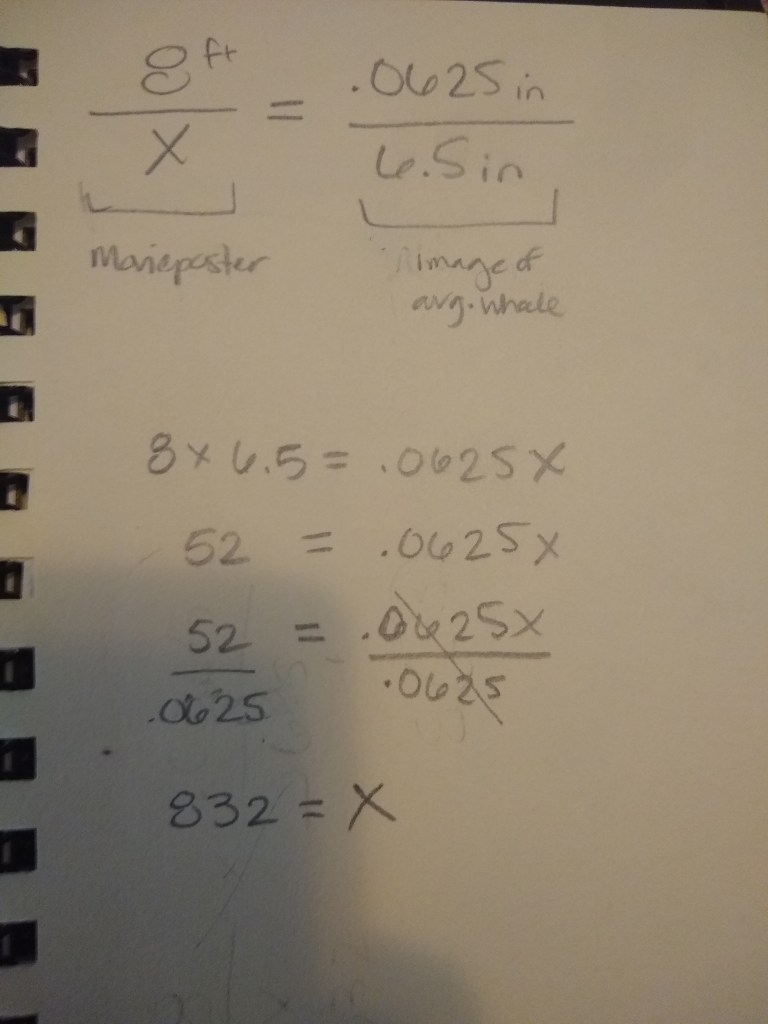 8 ft = .0625 in
X 6.5 in
Movieposter image of
avg. whale
8 x 6.5 = .0625 X
52 = .0625 X
52 = .0625 X
.0625 .0625
832 = X